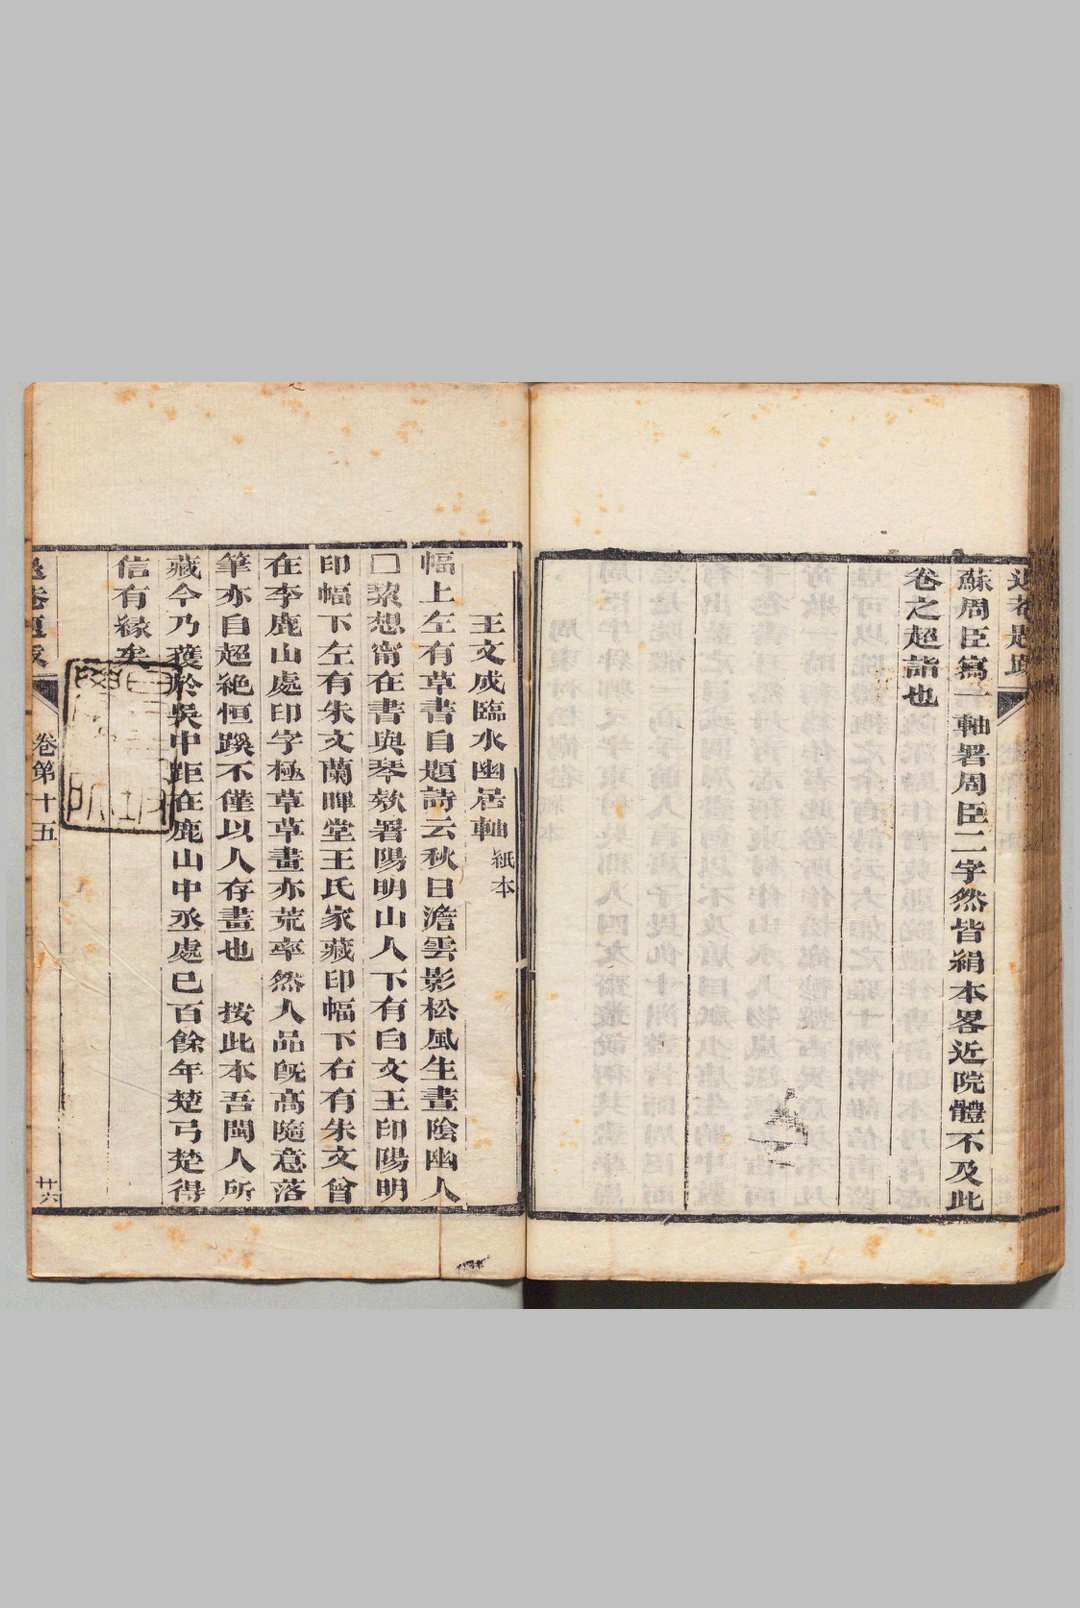 退菴題跋
蘇周臣寫一軸署周臣二字然皆絹本畧近院體不及此
卷之超詣也
王文成臨水幽居軸 紙本
幅上左有草書自題詩云秋日澹雲影松風生晝陰幽人
□絜想甯在書與琴欵署陽明山人下有白文王印陽明
印幅下左有朱文蘭暉堂王氏家藏印幅下右有朱文曾
在李鹿山處印字極草草畫亦荒率然人品旣高隨意落
筆亦自超絶恒蹊不僅以人存畫也 按此本吾閩人所
藏今乃獲於吳中距在鹿山中丞處已百餘年楚弓楚得
信有緣矣
退菴題跋 卷第十五 廿六